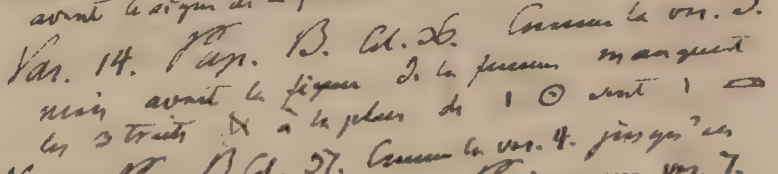 avant le signe de
Var. 14. Pap. B. Col. 26. Comme la var. 2.
mais avant la figure de la femme manquent
les 3 traits à la place de ı ⊙ sont ı
B Col. 27. Comme la var. 4. jusqu'au
var. 7.